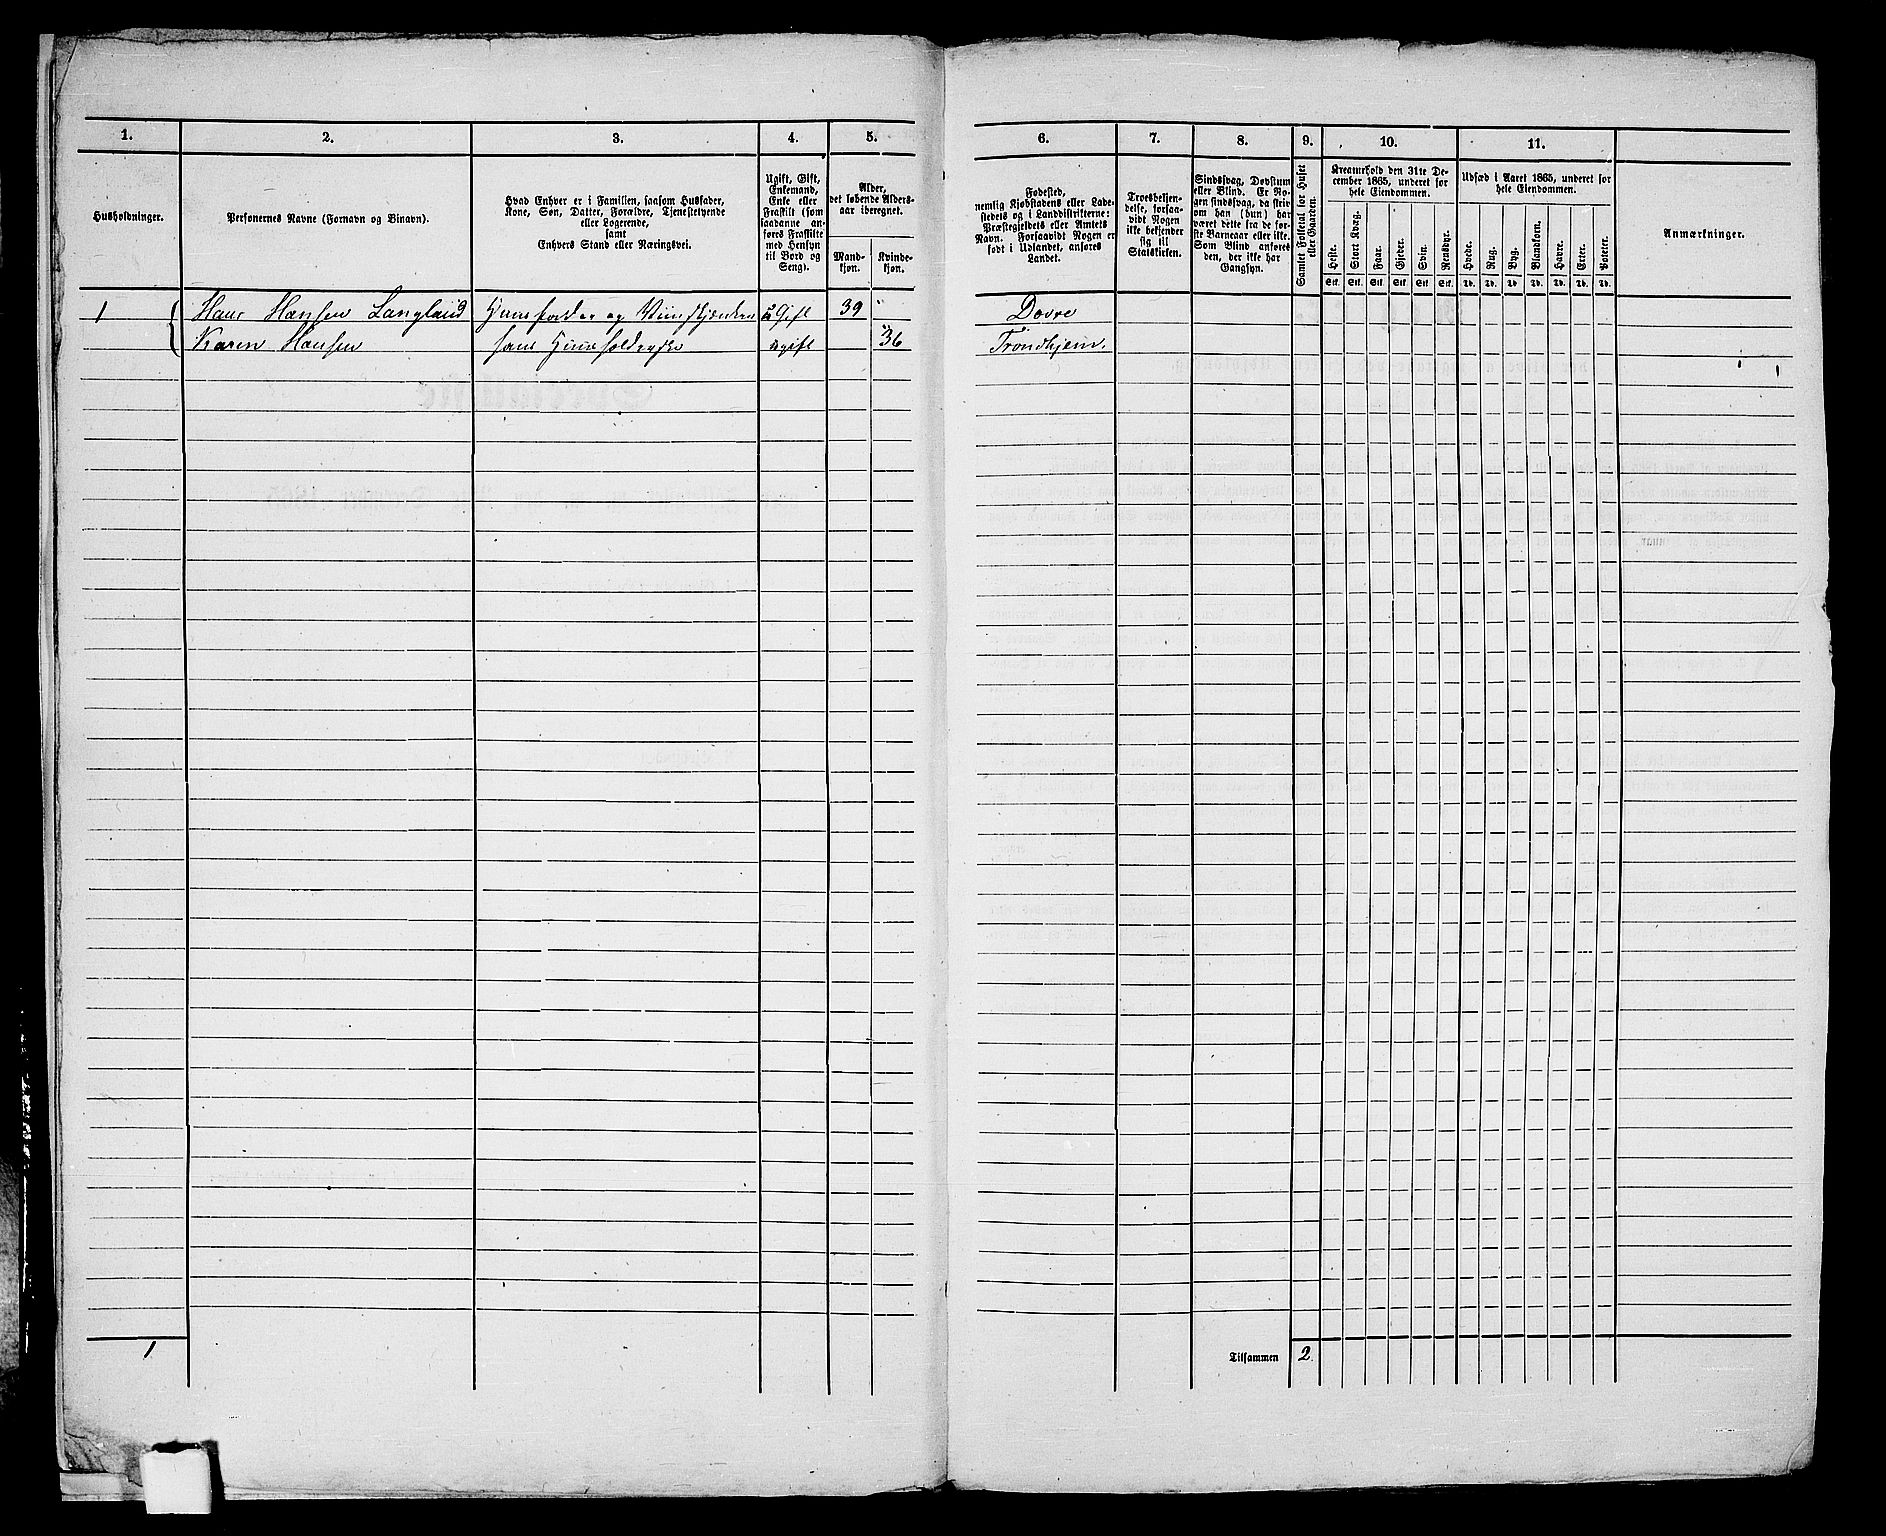 1.
2.
3.
4.
5.
Husholdninger.
Personernes Navne (Fornavn og Binavn).
Hvad Enhver er i Familien, saasom Husfader,
Kone, Søn, Datter, Forældre, Tjenestetyende
eller Logerende,
samt
Enhvers Stand eller Næringsvei.
Ugift, Gift,
Enkemand,
Enke eller
Fraskilt (som
saadanne an-
føres Fraskilte
med Hensyn
til Bord og
Seng).
Alder,
det løbende Alders-
aar iberegnet.
Mand-
kjøn.
Kvinde-
kjøn.
1 Hans Hansen Langland Huusfader og ugift 39 "
Karen Hansen hans Huusholderske ugift " 36
1
6.
7.
8.
9.
10.
11.
Fødested,
nemlig Kjøbstadens eller Lade-
stedets og i Landdistrikterne:
Præstegjeldets eller Amtets
Navn. Forsaavidt Nogen er
født i Udlandet, anføres
Landet.
Troesbekjen-
delse, forsaa-
vidt Nogen
ikke bekjender
sig til
Statskirken.
Sindssvag, Døvstum
eller Blind. Er No-
gen sindssvag, da skriv
om han (hun) har
været dette fra de før-
ste Barneaar eller ikke.
Som Blind anføres
den, der ikke har
Gangsyn.
Samlet Folketal for Huset
eller Gaarden.
Kreaturhold den 31te De-
cember 1865, underet for
hele Eiendommen.
Heste.
Stort Kvæg.
Faar.
Gjeder.
Svin.
Rensdyr.
Stk. Stk. Stk. Stk. Stk. Stk.
Udsæd i Aaret 1865, underet for
hele Eiendommen.
Hvede.
Rug.
Byg.
Blandkorn.
Havre.
Erter.
Poteter.
Td. Td. Td. Td. Td. Td. Td.
Anmærkninger.
Dovre
Trondhjem.
Tilsammen 2